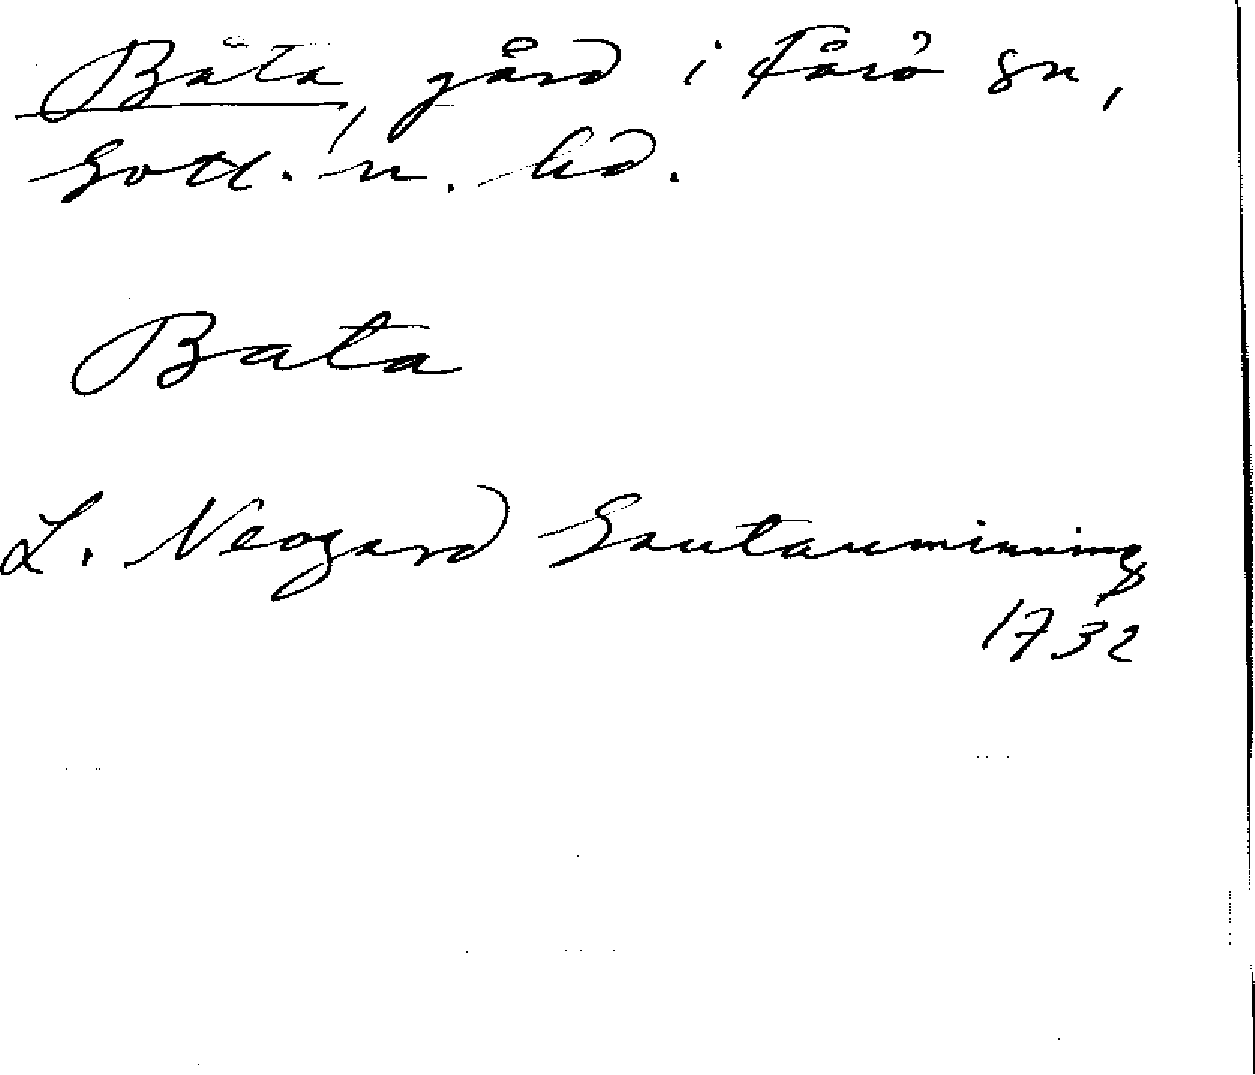 Båta, gård i Fårö sn,
Gotl. n. hd.
Bata
L. Neogard Gautauminning
1732